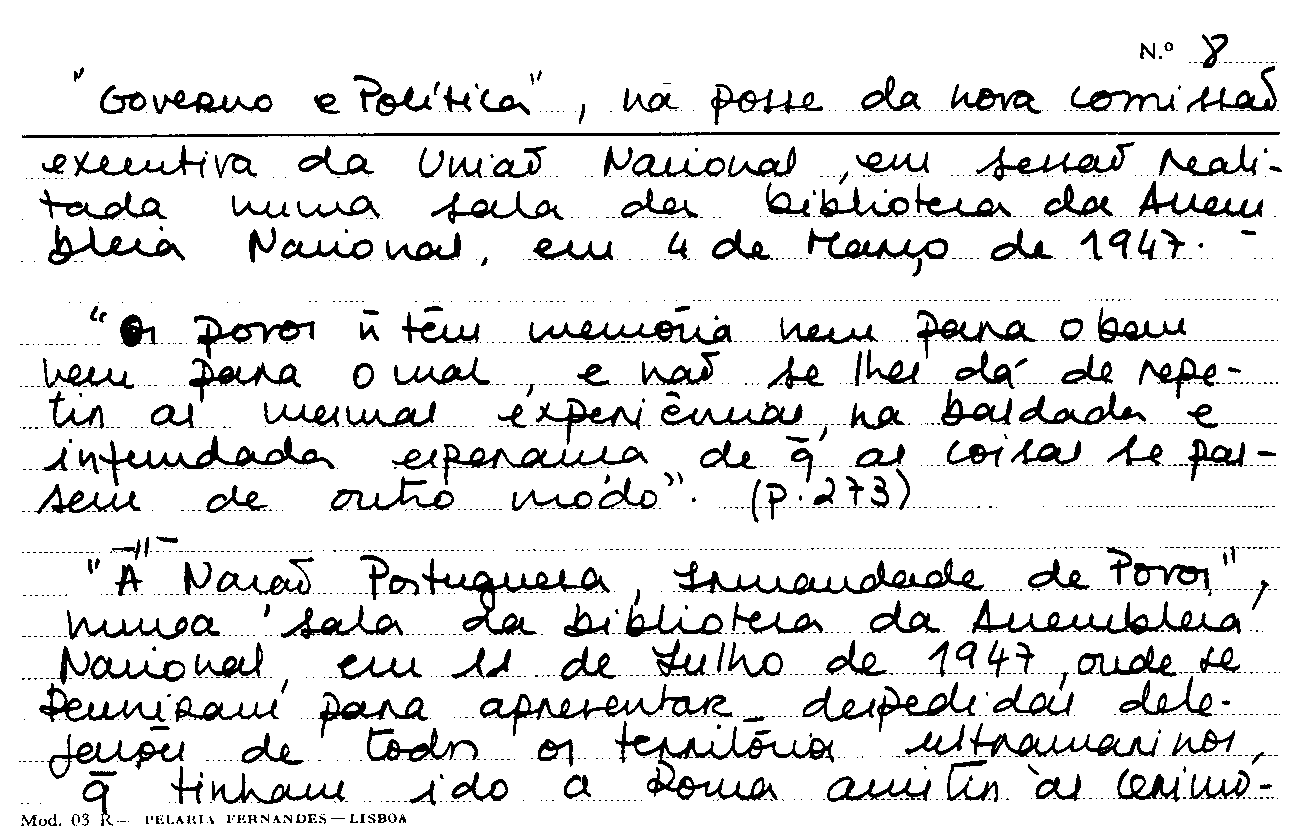 N.º 8
"Governo e Política", na posse da nova comissão
executiva da União Nacional, em sessão reali-
zada numa sala da biblioteca da Assem
bleia Nacional, em 4 de Março de 1947. -
"Os povos ñ têm memória nem para o bem
nem para o mal, e não se lhes dá de repe-
tir as mesmas experiências, na baldada e
infundada esperança de q̄ as coisas se pas-
sem de outro modo". (p. 273)
—"—
"A Nação Portuguesa, Irmandade de Povos",
numa sala da biblioteca da Assembleia
Nacional, em 11 de Julho de 1947, onde se
reuniram para apresentar despedidas dele-
gações de todos os territórios ultramarinos,
q̄ tinham ido a Roma assistir às cerimó-
Mod. 03 R — PELARIA FERNANDES — LISBOA